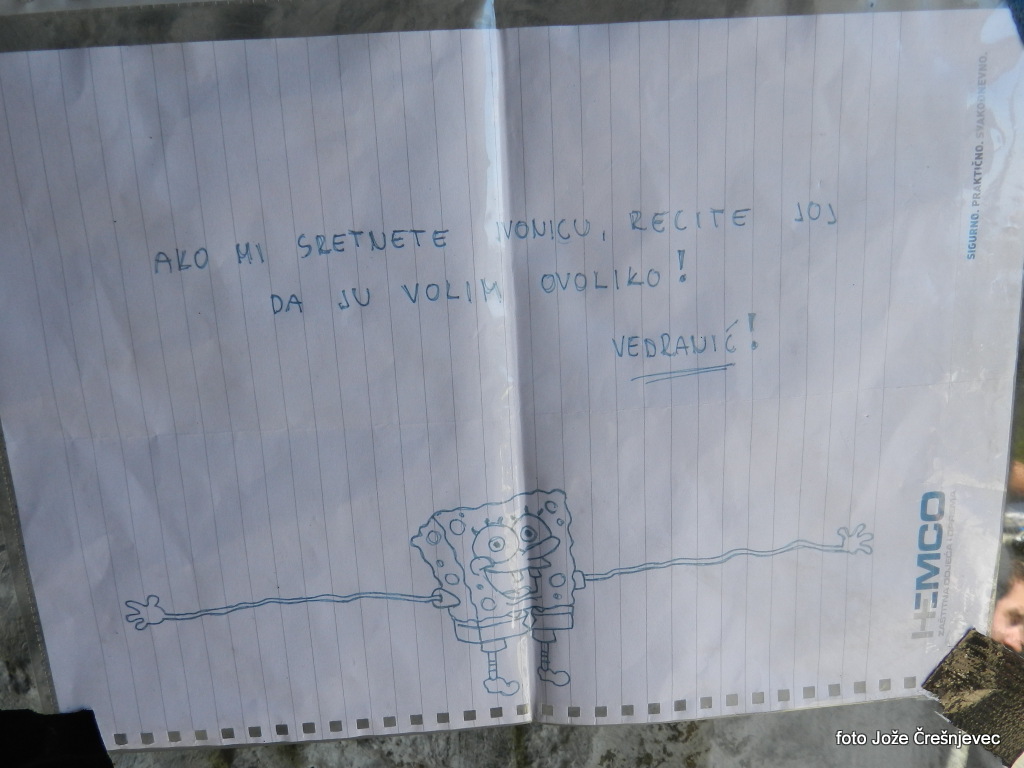 AKO MI SRETNETE IVONICU, RECITE JOJ
DA JU VOLIM OVOLIKO!
VEDRANIĆ!
SIGURNO. PRAKTIČNO. SVAKODNEVNO.
HEMCO
ZAŠTITNA ODJEĆA I OPREMA
foto Jože Črešnjevec